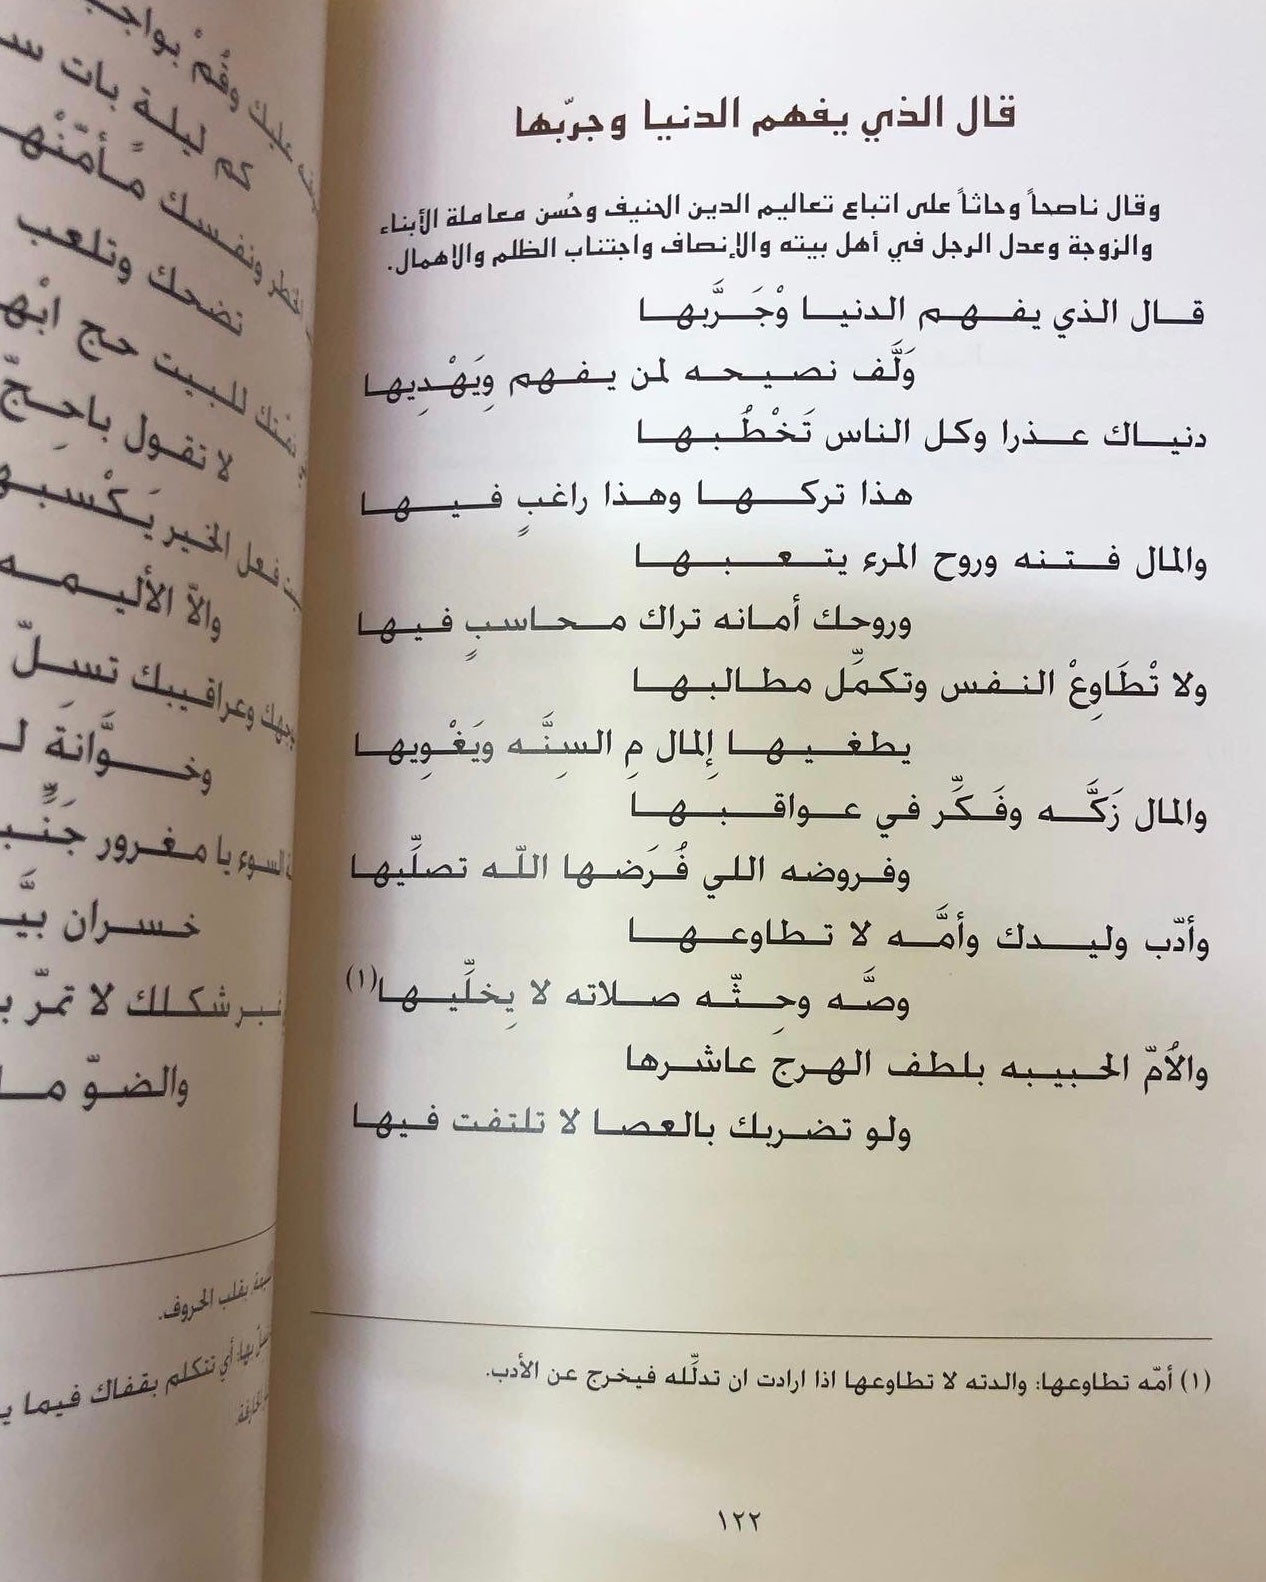 قال الذي يفهم الدنيا وجرّبها
وقال ناصحاً وحاثاً على اتباع تعاليم الدين الحنيف وحُسن معاملة الأبناء
والزوجة وعدل الرجل في أهل بيته والإنصاف واجتناب الظلم والاهمال.
قال الذي يفهم الدنيا وْجَرَّبها
وَلَّف نصيحه لمن يفهم وِيَهْدِيها
دنياك عذرا وكل الناس تَخْطُبها
هذا تركها وهذا راغبٍ فيها
والمال فتنه وروح المرء يتعبها
وروحك أمانه تراك محاسبٍ فيها
ولا تْطَاوِعْ النفس وتكمِّل مطالبها
يطغيها إِلمال مِ السِنَّه ويَغْوِيها
والمال زَكَّه وفَكِّر في عواقبها
وفروضه اللي فُرَضها اللّه تصلِّيها
وأدّب وليدك وأمَّه لا تطاوعها
وصَّه وحِثّه صلاته لا يِخلِّيها(١)
والاُمّ الحبيبه بلطف الهرج عاشرها
ولو تضربك بالعصا لا تلتفت فيها
(١) أمّه تطاوعها: والدته لا تطاوعها اذا ارادت ان تدلِّله فيخرج عن الأدب.
١٢٢
كم ليلة بات
تضحك وتلعب
للبيت حج ابْها
لا تقول باحِجّ
فعل الخير يَكْسبها
والاّ الأليمه
وعراقيبك تسِلّ
وخوَّانة
السوء يا مغرور جَنِّب
خسران
شكلك لا تمرّ
والضوّ
بقلب الحروف.
أي تتكلم بقفاك فيما